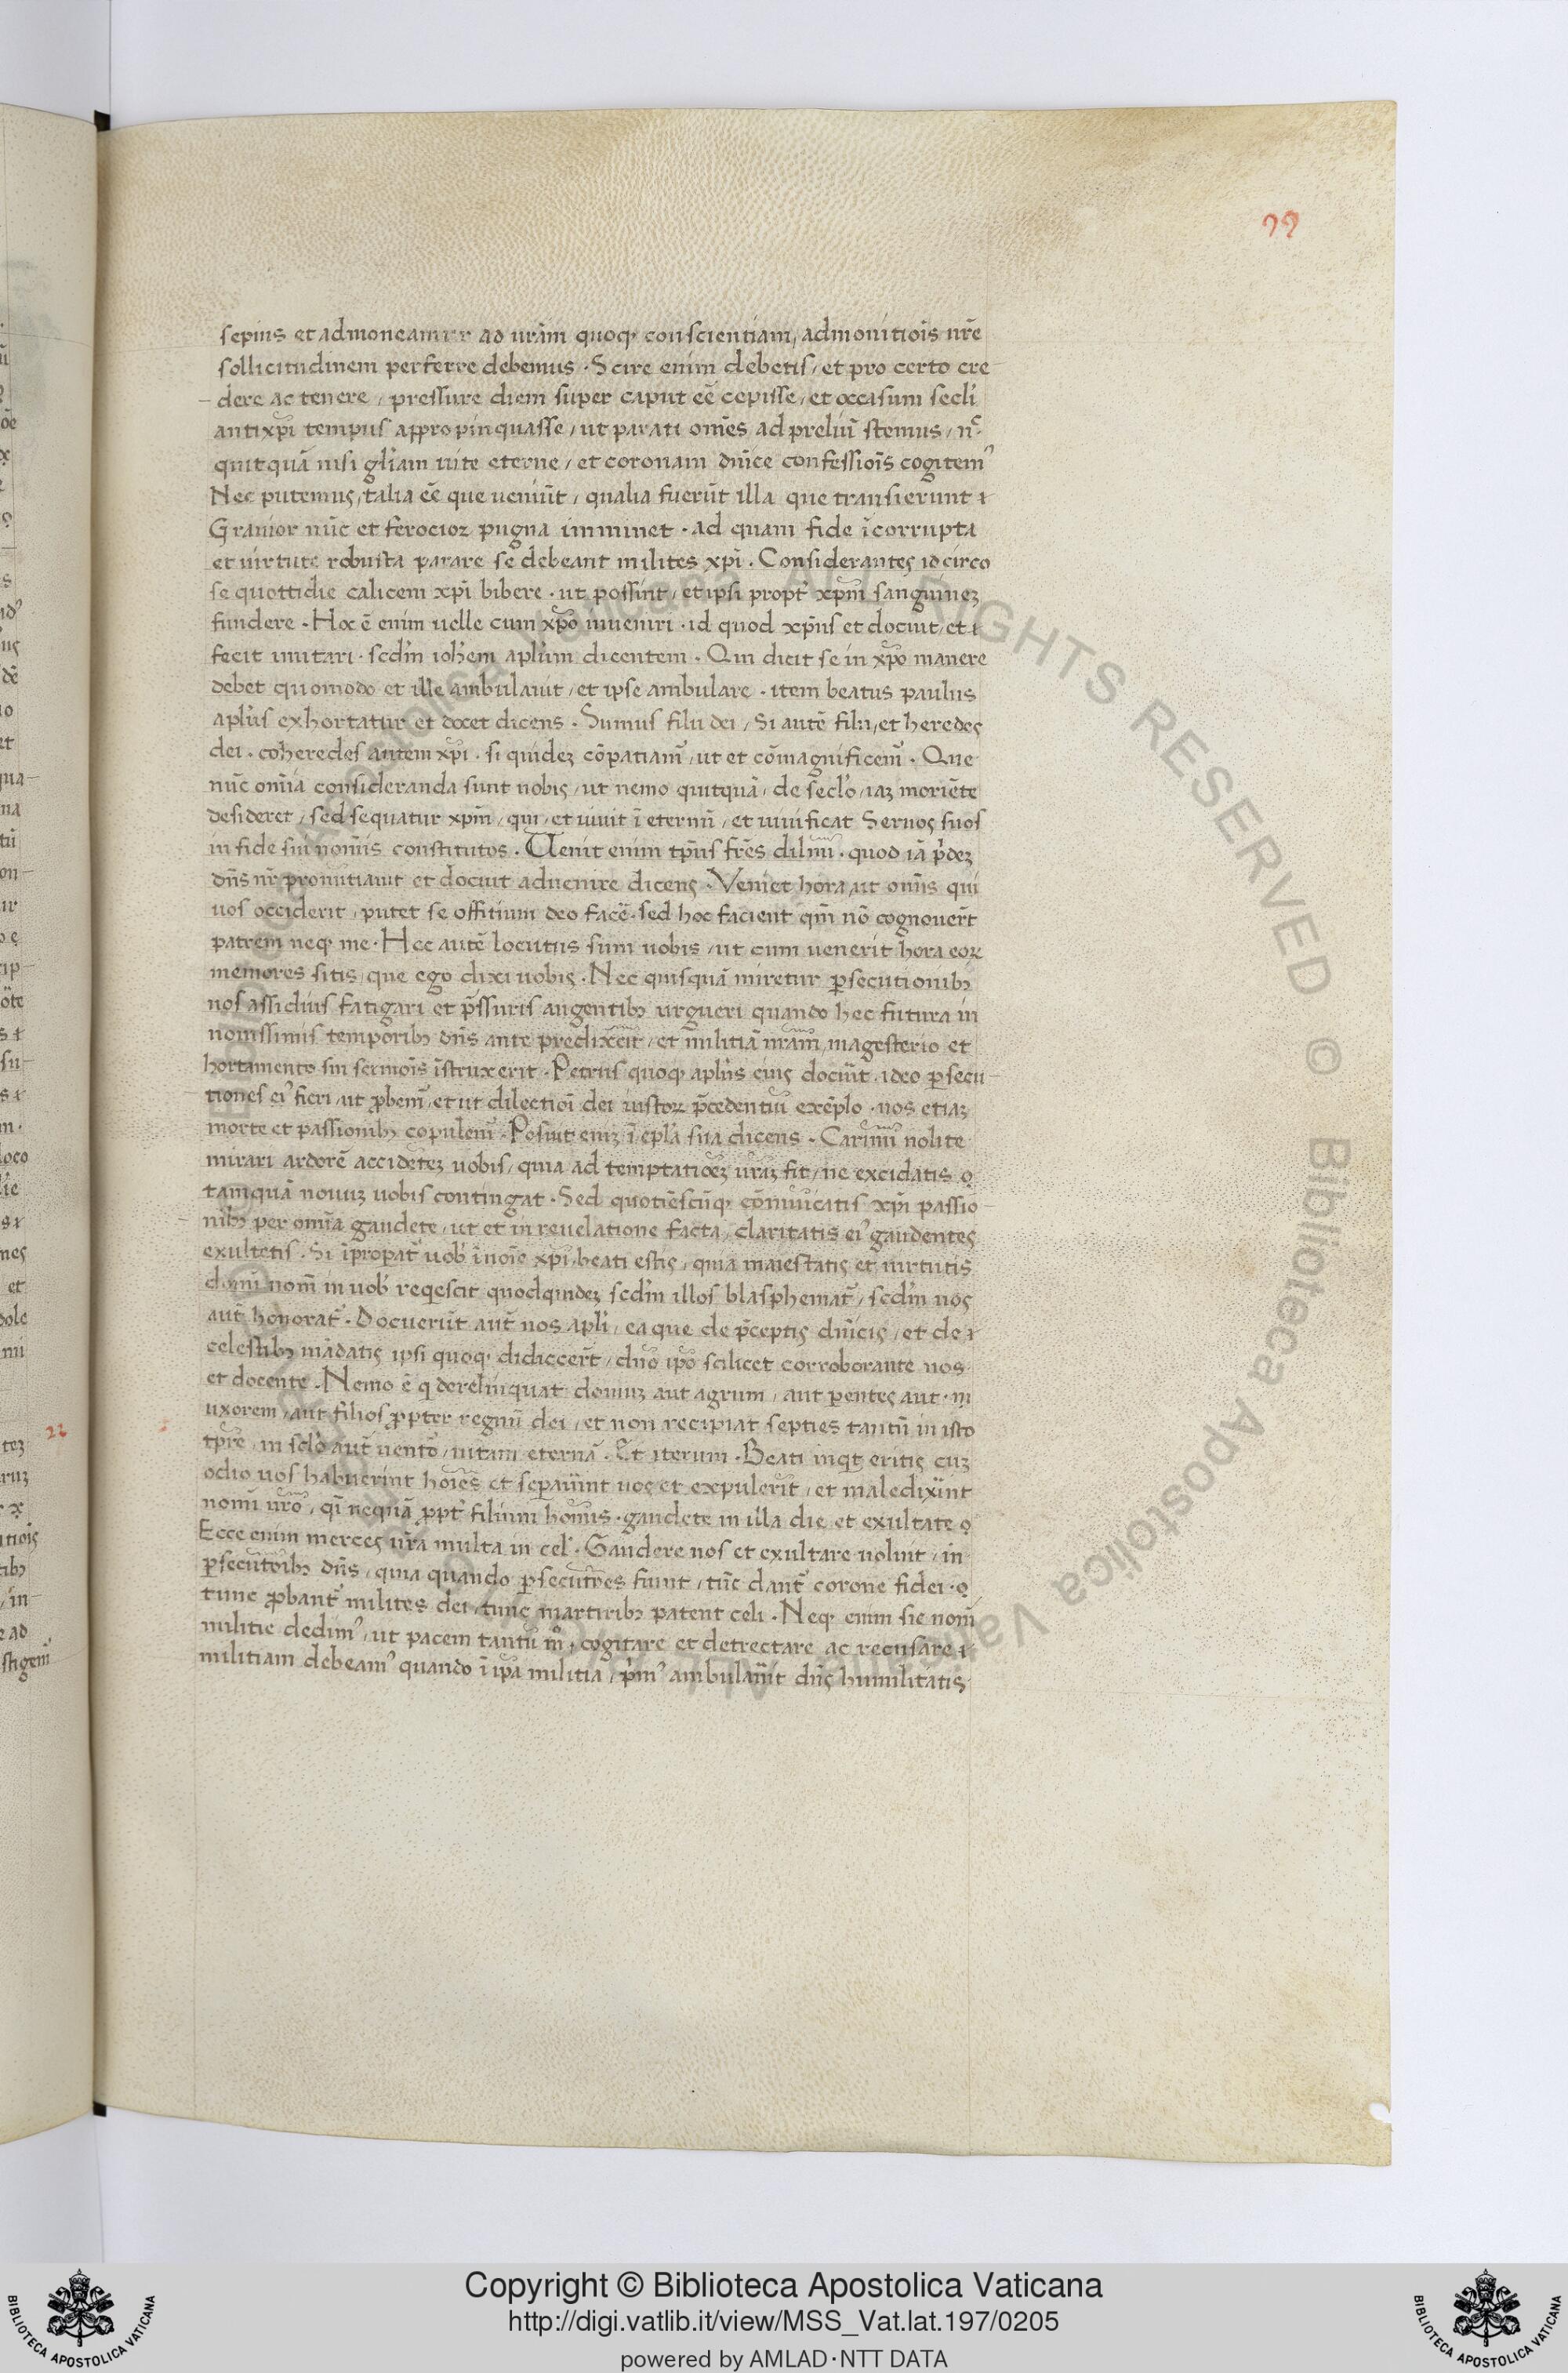 99
sepius et admoneamur ad urãm quoqꝫ conscientiam, admonitiõis nr̃e
sollicitudinem perferre debemus · Scire enim debetis / et pro certo cre
dere ac tenere / pressure diem super caput eẽ cepisse / et occasum secl̃i
antixp̃i tempus appropinquasse / ut parati om̃es ad preliũ stemus / n̄c·
quitquã nisi gl̃iam uite eterne / et coronam dñice confessiõis cogitemꝰ
Nec putemus, talia eẽ que ueniũt / qualia fuerũt illa que transierunt
Grauior nũc et ferocior pugna imminet · ad quam fide ĩcorrupta
et uirtute robusta parare se debeant milites xp̃i · Considerantes idcirco
se quottidie calicem xp̃i bibere · ut possint / et ipsi propt̃ xpm̃ sanguineꝫ
fundere · Hoc ẽ enim uelle cum xp̃o inueniri · id quod xp̃us et docuit / et
fecit imitari · scdm̃ ioh̃em apl̃um dicentem · Qui dicit se in xp̃o manere
debet quomodo et ille ambulauit / et ipse ambulare · item beatus paulus
apl̃us exhortatur et docet dicens · Sumus filii dei / Si autẽ filii, et heredes
dei · coheredes autem xp̃i · si quideꝫ cõpatiamꝰ / ut et cõmagnificemꝰ · Que
nũc om̃ia consideranda sunt nobis / ut nemo quitquã / de secl̃o / iaꝫ moriẽte
desideret / sed sequatur xpm̃ / qui / et uiuit ĩ eternũ / et uiuificat Seruos suos
in fide sui nom̃is constitutos · Uenit enim tp̃us fr̃es dilm̃i · quod iã p̃deꝫ
dñs nr̃ pronũtiauit et docuit aduenire dicens · Veniet hora, ut om̃is qui
uos occiderit / putet se offitium deo facẽ · sed hoc facient qm̃ nõ cognouer̃t
patrem neqꝫ me · Hec autẽ locutus sum uobis / ut cum uenerit hora eoꝝ
memores sitis / que ego dixi uobis · Nec quisquã miretur ꝑsecutionibꝫ
nos assiduis fatigari et p̃ssuris angentibꝫ urgueri quando hec futura in
nouissimis temporibꝫ dñs ante predixerit / et militiã nr̃am, magesterio et
hortamento sui sermõis ĩstruxerit · Petrus quoqꝫ apl̃us eius docuit · ideo ꝑsecu
tiones eiꝰ fieri / ut ꝓbemꝰ / et ut dilectioĩ dei iustoꝝ p̃cedentiũ exẽplo · nos etiaꝫ
morte et passionibꝫ copulemꝰ · Posuit eniꝫ ĩ epl̃a sua dicens · Carim̃i nolite
mirari ardorẽ accidẽteꝫ uobis / quia ad temptatioẽꝫ ur̃aꝫ fit / ne excidatis
tamquã nouuꝫ uobis contingat · Sed quotiẽscũqꝫ cõmũicatis xp̃i passio
nibꝫ per om̃ia gaudete / ut et in reuelatione facta / claritatis eiꝰ gaudentes
exultetis · Si ĩproperat̃ uob̃ ĩ noĩe xp̃i, beati estis / quia maiestatis et uirtutis
domĩ nom̃ in uob̃ reqescit quodquideꝫ scdm̃ illos blasphemat̃ / scdm̃ nos
aut̃ honorat̃ · Docuerũt aut̃ nos apl̃i / ea que de p̃ceptis dñicis / et de
celestibꝫ mãdatis ipsi quoqꝫ didiccer̃t / dño ip̃o scilicet corroborante nos
et docente · Nemo ẽ q derelinquat domuꝫ aut agrum / aut ꝑentes aut
uxorem / aut filios ꝓpter regnũ dei / et non recipiat septies tantũ in isto
tp̃re / in scl̃o aut̃ uentõ / uitam eternã · Et iterum · Beati inqt̃ eritis cuꝫ
odio uos habuerint hoĩes et sepaũint uos et expulerĩt / et maledixĩnt
nom̃i ur̃o / qĩ nequã ꝓpt̃ filium hom̃is · gaudete in illa die et exultate
Ecce enim merces ur̃a multa in cel̃ · Gaudere nos et exultare uoluit / in
ꝑsecutõibꝫ dñs / quia quando ꝑsecutões fiunt / tũc dant̃ corone fidei ·
tunc ꝓbant̃ milites dei / tunc martiribꝫ patent celi · Neqꝫ enim sic nom̃
militie dedimꝰ / ut pacem tantũ m̃ / cogitare et detrectare ac recusare
militiam debeamꝰ quando ĩ ip̃a militia / p̃mꝰ ambulauĩt dñs humilitatis
22
Copyright © Biblioteca Apostolica Vaticana
http://digi.vatlib.it/view/MSS_Vat.lat.197/0205
powered by AMLAD·NTT DATA
BIBLIOTECA APOSTOLICA VATICANA
BIBLIOTECA APOSTOLICA VATICANA